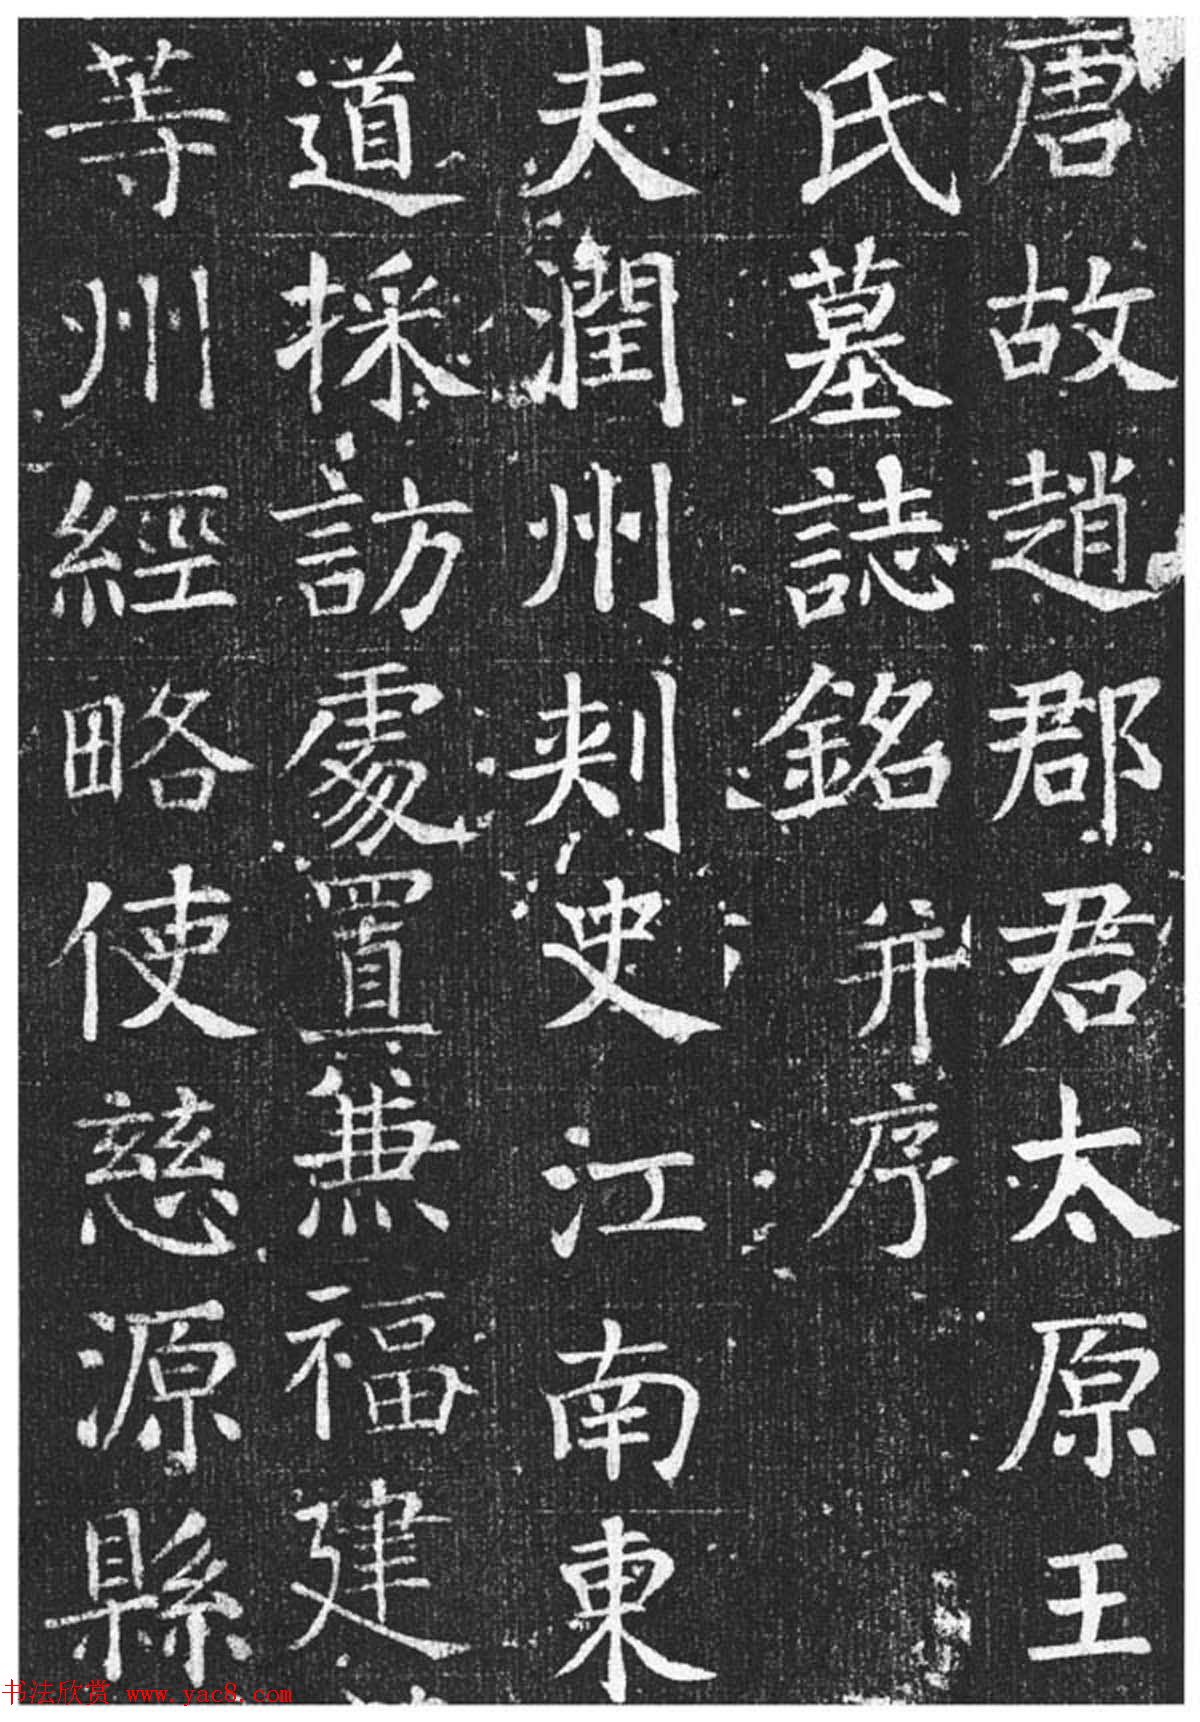 唐故趙郡君太原王
氏墓誌銘并序
夫潤州刾史江南東
道採訪處置兼福建
等州經略使慈源縣
书法欣赏 www.yac8.com